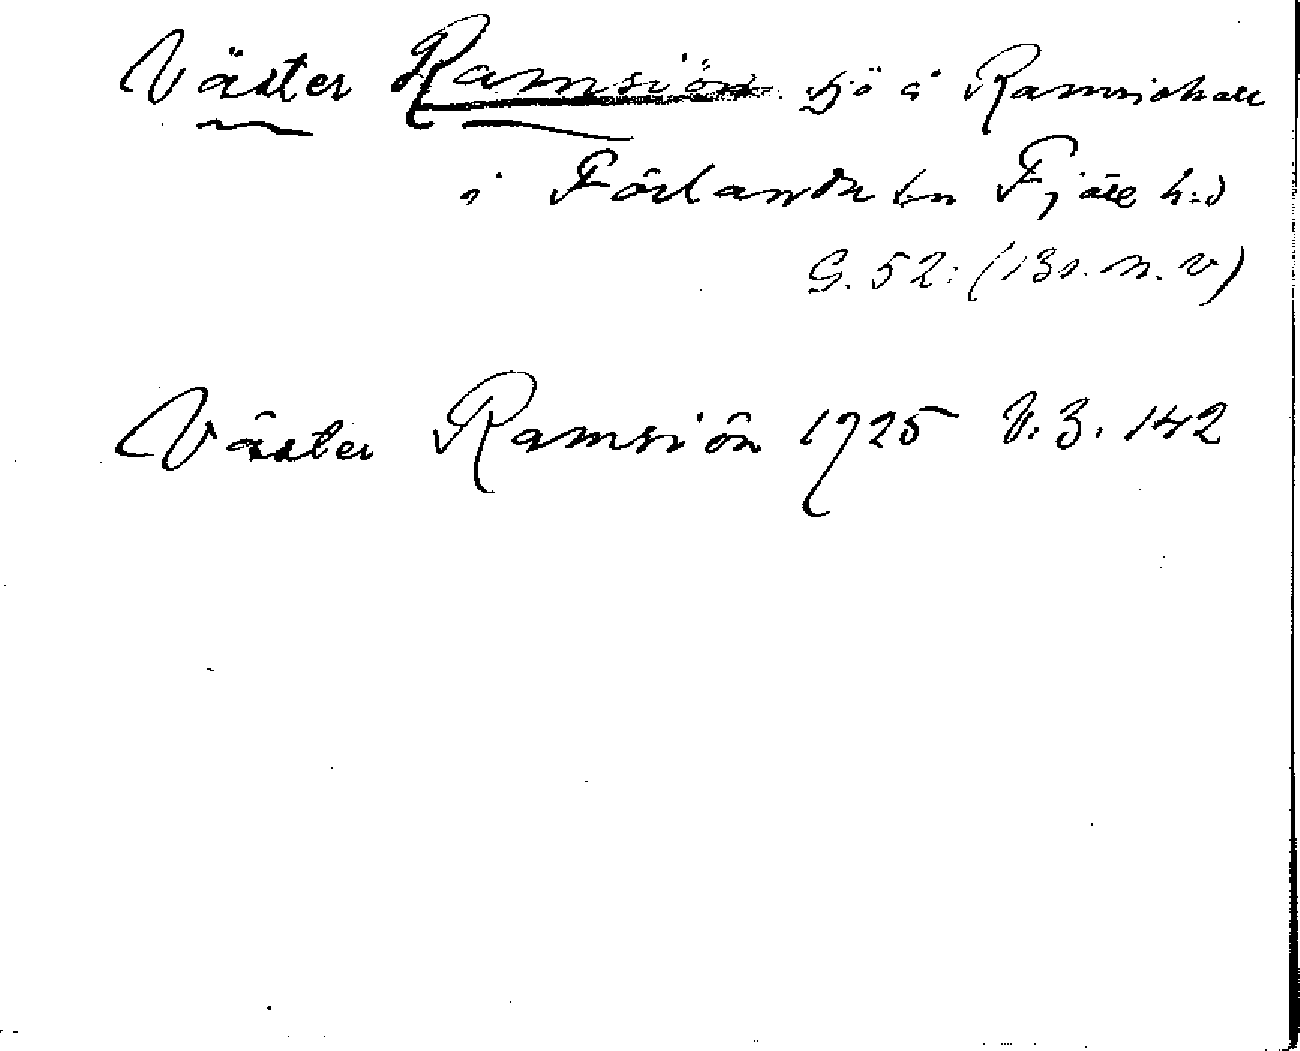 Väster Ramsiön sjö å Ramsiohall
i Förlanda sn Fjäre h:d
G. 52: (131. n. v)
Väster Ramsiön 1725 V. 3. 142